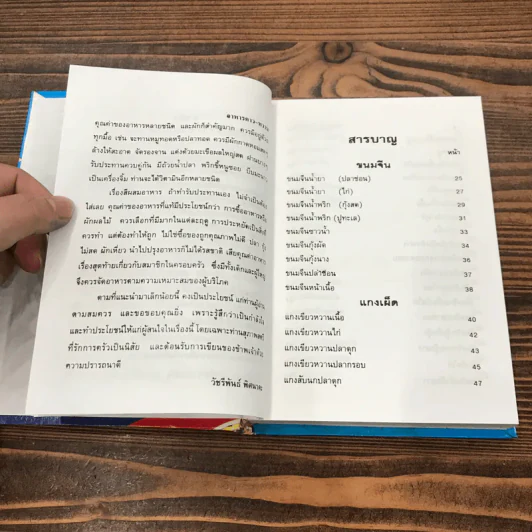 อาหารคาว-หวาน
คุณค่าของอาหารหลายชนิด และผักก็สำคัญมาก ควรมีอยู่ด้วย
ทุกมื้อ เช่น จะทานหมูทอดหรือปลาทอด ควรมีผักกาดหอม
ล้างให้สะอาด จัดรองจาน แต่งด้วยมะเขือผลใหญ่สด
รับประทานควบคู่กัน มีถ้วยน้ำปลา พริกขี้หนูซอย บีบมะนาว
เป็นเครื่องจิ้ม ท่านจะได้วิตามินอีกหลายชนิด
เรื่องสีผสมอาหาร ถ้าทำรับประทานเอง ไม่จำเป็นต้อง
ใส่เลย คุณค่าของอาหารที่แท้มีประโยชน์กว่า การซื้ออาหาร
ผักผลไม้ ควรเลือกที่มีมากในแต่ละฤดู การประหยัดเป็นสิ่งที่
ควรทำ แต่ต้องทำให้ถูก ไม่ใช่ซื้อของถูกคุณภาพไม่ดี ปลา กุ้ง
ไม่สด ผักเหี่ยว นำไปปรุงอาหารก็ไม่ได้รสชาติ เสียคุณค่าอาหาร
เรื่องสุดท้ายเกี่ยวกับสมาชิกในครอบครัว ซึ่งมีทั้งเด็กและผู้ใหญ่
จึงควรจัดอาหารตามความเหมาะสมของผู้บริโภค
ตามที่แนะนำมาเล็กน้อยนี้ คงเป็นประโยชน์ แก่ท่านผู้อ่าน
ตามสมควร และขอขอบคุณยิ่ง เพราะรู้สึกว่าเป็นกำลังใจ
และทำประโยชน์ให้แก่ผู้สนใจในเรื่องนี้ โดยเฉพาะท่านสุภาพสตรี
ที่รักการครัวเป็นนิสัย และต้อนรับการเขียนของข้าพเจ้าด้วย
ความปรารถนาดี
วัชรีพันธ์
สารบาญ
หน้า
ขนมจีน
ขนมจีนน้ำยา (ปลาช่อน) 25
ขนมจีนน้ำยา (ไก่) 27
ขนมจีนน้ำพริก (กุ้งสด) 29
ขนมจีนน้ำพริก (ปูทะเล) 31
ขนมจีนซาวน้ำ 33
ขนมจีนกุ้งผัด 34
ขนมจีนกุ้งนาง 35
ขนมจีนปลาช่อน 36
ขนมจีนหน้าเนื้อ 38
แกงเผ็ด
แกงเขียวหวานเนื้อ 40
แกงเขียวหวานไก่ 42
แกงเขียวหวานปลาดุก 43
แกงเขียวหวานปลากรอบ 45
แกงสับนกปลาดุก 47